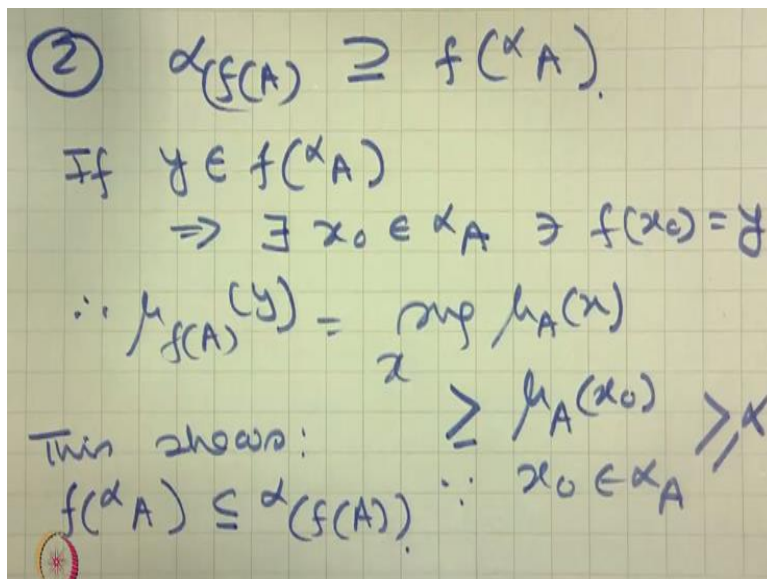 ② α(f(A)) ⊇ f(αA).
If y ∈ f(αA)
⇒ ∃ x₀ ∈ αA ∋ f(x₀) = y
∴ μ_f(A)(y) = sup μA(x)
x
≥ μA(x₀) ≥ α
This shows:
∵ x₀ ∈ αA
f(αA) ⊆ α(f(A)).